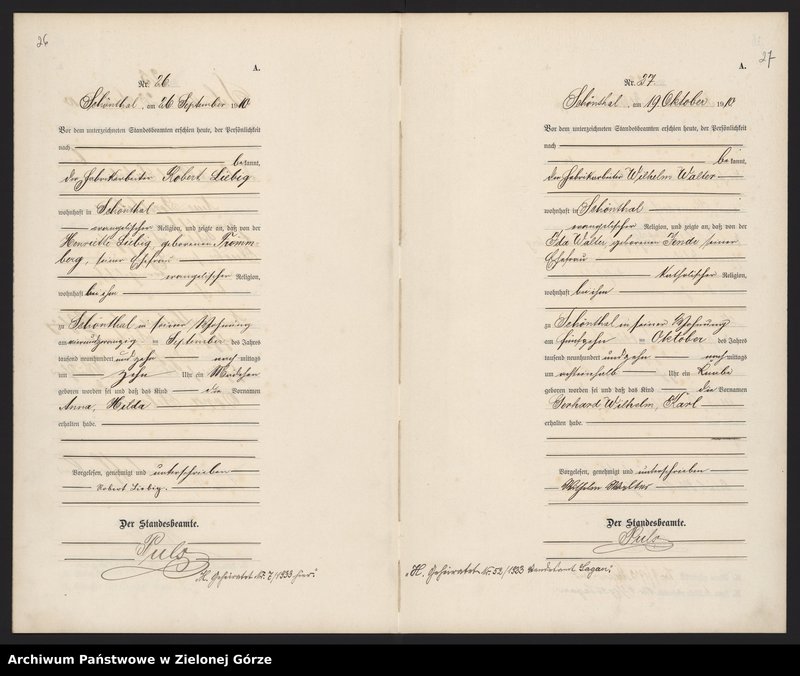 26
A.
Nr. 26.
Schönthal, am 26 September 1910
Vor dem unterzeichneten Standesbeamten erschien heute, der Persönlichkeit
nach
bekannt,
der Fabrikarbeiter Robert Liebig
wohnhaft in Schönthal
evangelischer Religion, und zeigte an, daß von der
Henriette Liebig geborenen Tromm-
berg, seiner Ehefrau
evangelischer Religion,
wohnhaft bei ihm
zu Schönthal in seiner Wohnung
am vierundzwanzig ten September des Jahres
tausend neunhundert und zehn nach mittags
um zehn Uhr ein Mädchen
geboren worden sei und daß das Kind die Vornamen
Anna, Hilda
erhalten habe.
Vorgelesen, genehmigt und unterschrieben
Robert Liebig.
Der Standesbeamte.
Puls
"H. Geheiratet Nr. 7/1933 hier."
27
A.
Nr. 27.
Schönthal, am 19 Oktober 1910.
Vor dem unterzeichneten Standesbeamten erschien heute, der Persönlichkeit
nach
bekannt,
der Fabrikarbeiter Wilhelm Walter
wohnhaft in Schönthal
evangelischer Religion, und zeigte an, daß von der
Ida Walter geborenen seiner
Ehefrau
katholischer Religion,
wohnhaft bei ihm
zu Schönthal in seiner Wohnung
am fünfzehn ten Oktober des Jahres
tausend neunhundert und zehn nach mittags
um Uhr ein Knabe
geboren worden sei und daß das Kind die Vornamen
Gerhard Wilhelm, Karl
erhalten habe.
Vorgelesen, genehmigt und unterschrieben
Wilhelm Walter
Der Standesbeamte.
Puls
"H. Geheiratet Nr. 52/1933 Standesamt Sagan."
Archiwum Państwowe w Zielonej Górze